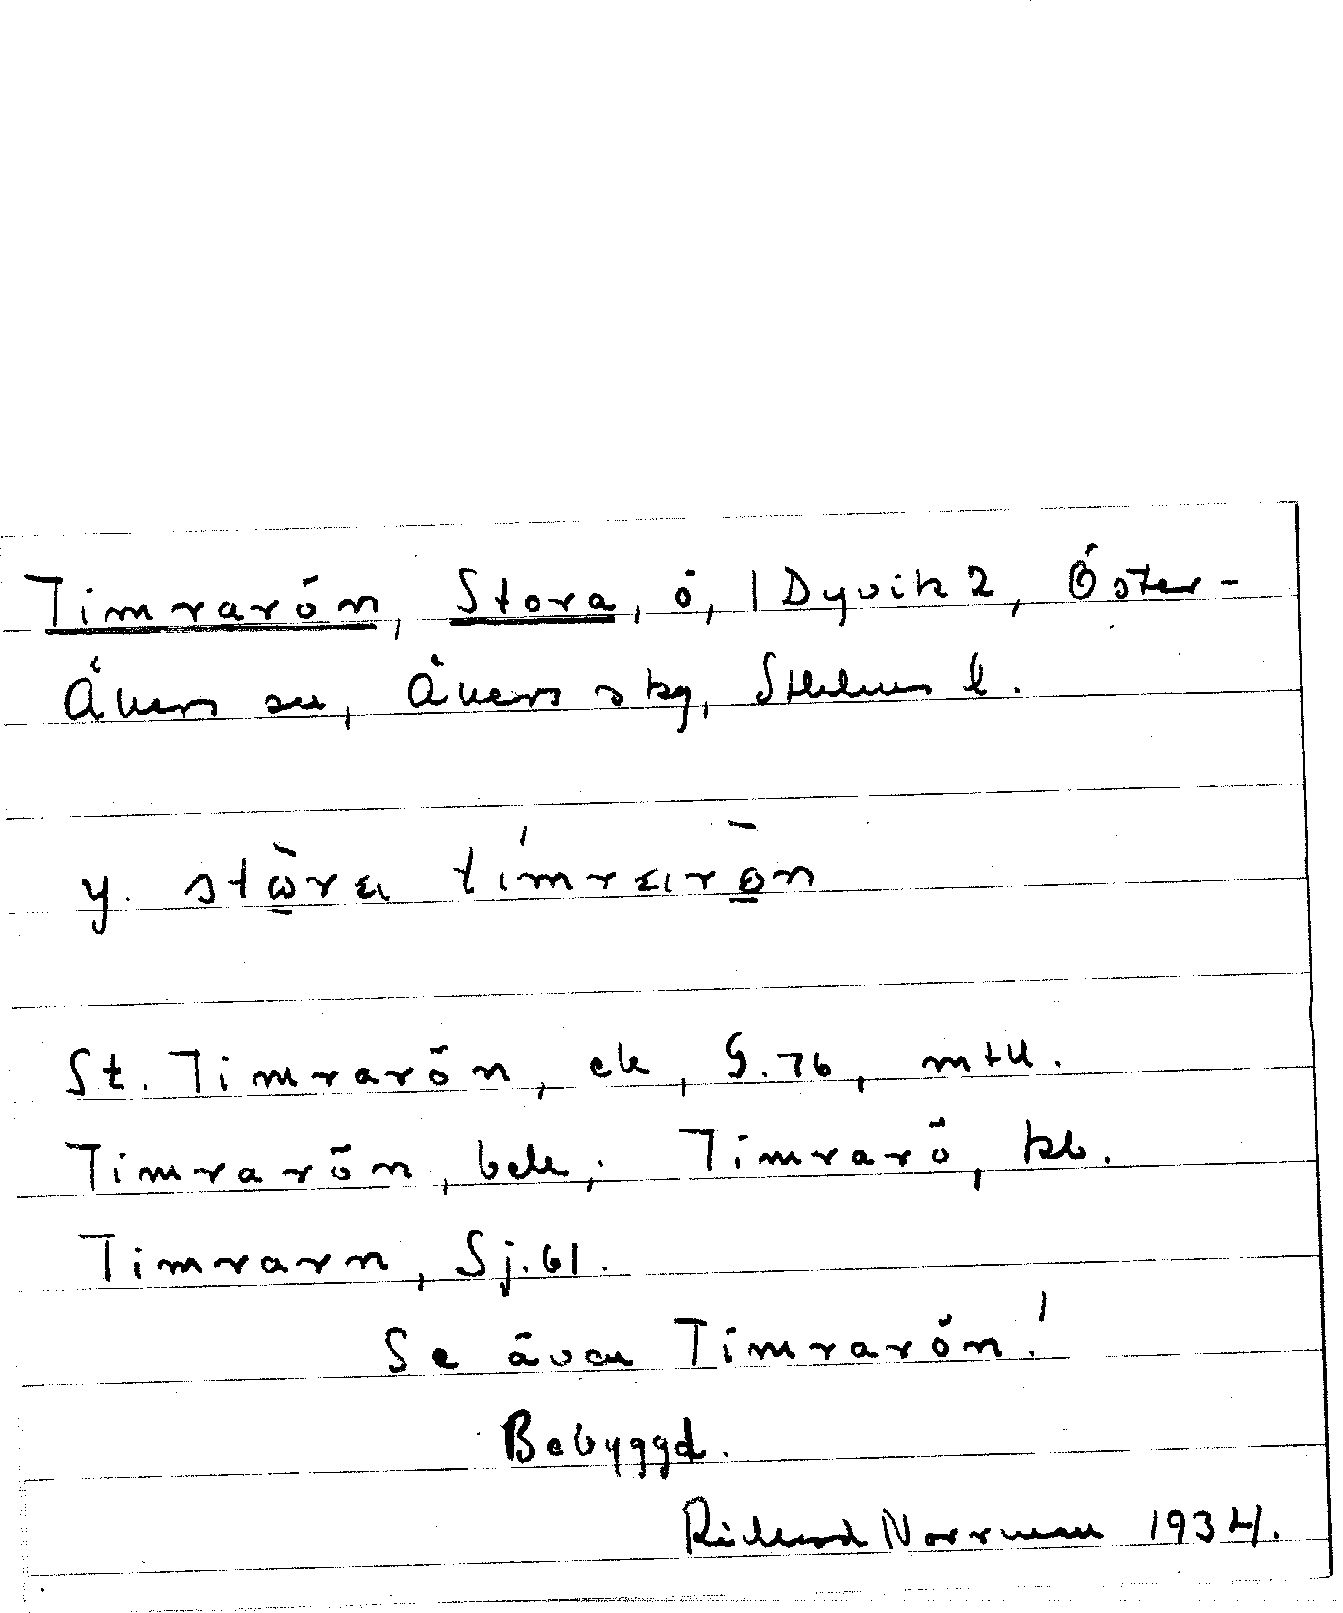 Timrarön, Stora, ö, 1 Dyvik 2, Öster-
Åkers sn, Åkers skg, Sthlms l.
y. stὼ̱ra tímrarō̱n
St. Timrarön, ek, G. 76, mtl.
Timrarön, bek; Timrarö, kb.
Timrarn, Sj. 61.
Se även Timrarön!
Bebyggd.
Richard Norrman 1934.